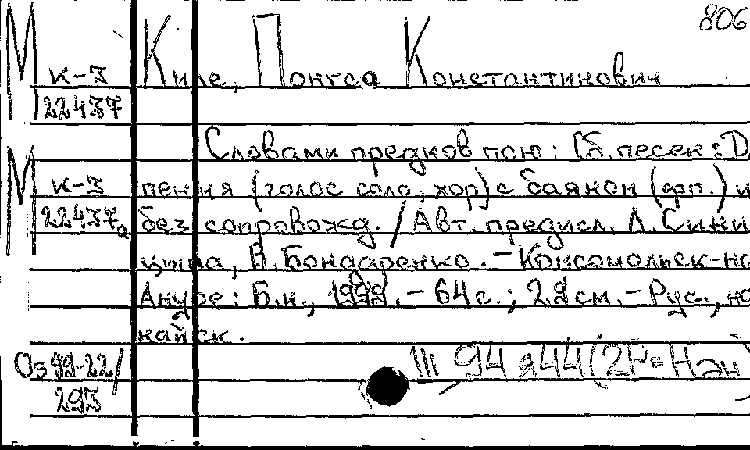 806
М к-3 Киле, Понгса Константинович
22437
Словами предков пою: [Сб. песен: Д
М к-3 пения (голос соло, хор) с баяном (фп.) и
22437а без сопровожд. / Авт. предисл. Л. Сини
цына, В. Бондаренко. - Комсомольск-на
Амуре: Б.и., 1992. - 64 с.; 22 см. - Рус., на
найск.
Оз 92-22/
293
Щ 94 я44(2Р=Нан)